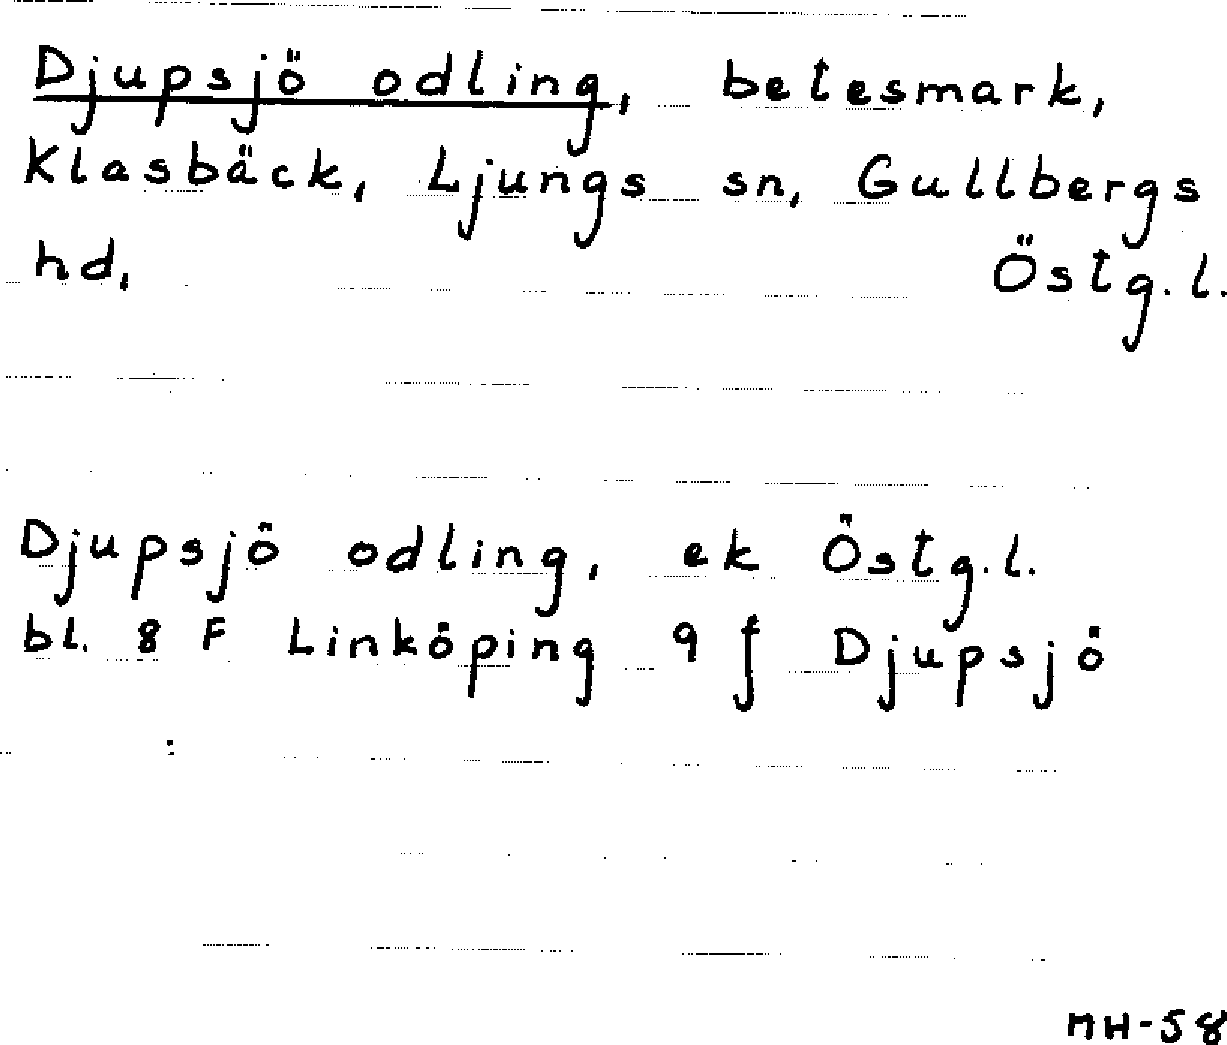 Djupsjö odling, betesmark,
Klasbäck, Ljungs sn, Gullbergs
hd, Östg.l.
Djupsjö odling, ek Östg.l.
bl. 8 F Linköping 9 f Djupsjö
MH-58